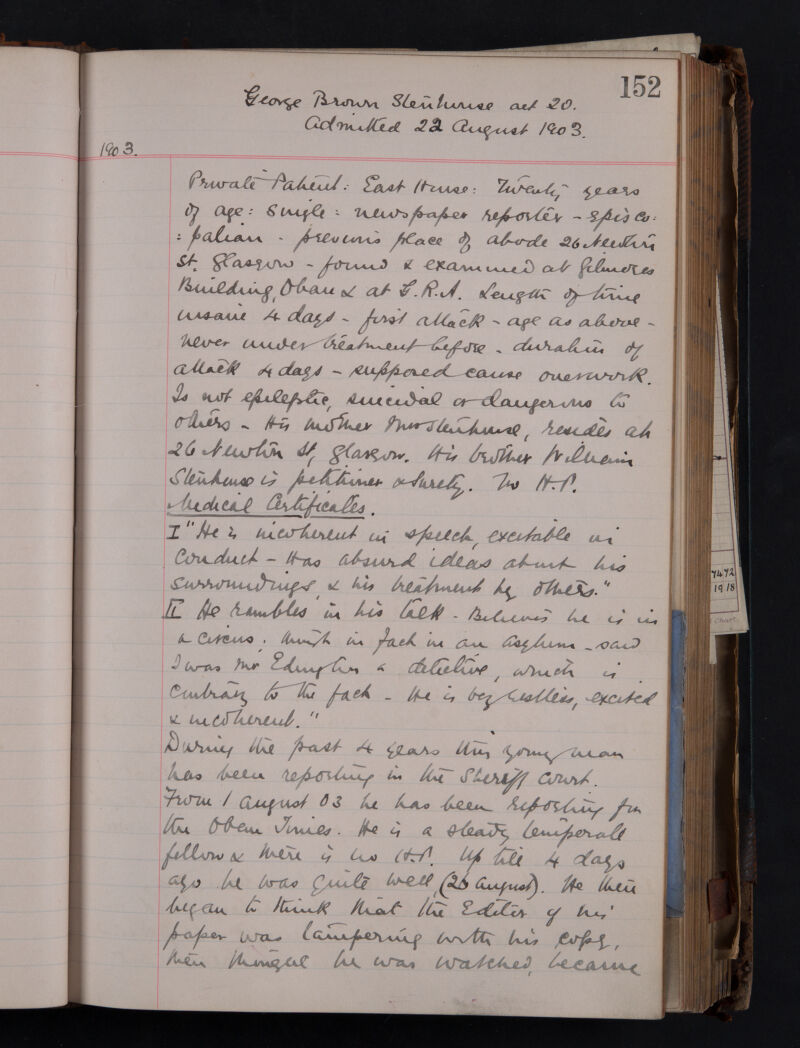 152
George Brown Stenhouse aet 20.
Admitted 22 August 1903.
1903.
Private Patient: East House: Twenty years
of age: Single: newspaper reporter - Episco:
:palian - previous place of abode 26 Newton
St. Glasgow - found & examined at Gilmores
Building, Oban & at G.R.A. Length of time
insane 4 days - first attack - age as above -
never under treatment before - duration of
attack 4 days - supposed cause overwork.
Is not epileptic, suicidal or dangerous to
others - His mother Mrs Stenhouse, resides at
26 Newton St, Glasgow. His brother William
Stenhouse is petitioner & surety. No H.P.
Medical Certificates.
I "He is incoherent in speech, excitable in
conduct - Has absurd ideas about his
surroundings, & his treatment by others."
II He rambles in his talk - Believes he is in
a circus; whilst in fact in an asylum - said
I was Mr a detective, which is
contrary to the fact - He is very restless, excited
& incoherent."
During the past 4 years this young man
has been reporting in the Sheriff Court.
From 1 August 03 he has been reporting for
the Oban Times. He is a steady temperate
fellow & there is no H.P. Up till 4 days
ago he was quite well, (20 August). He then
began to think that the Editor of his
paper was tampering with his copy,
then thought he was watched, became
7472
1918
Chart